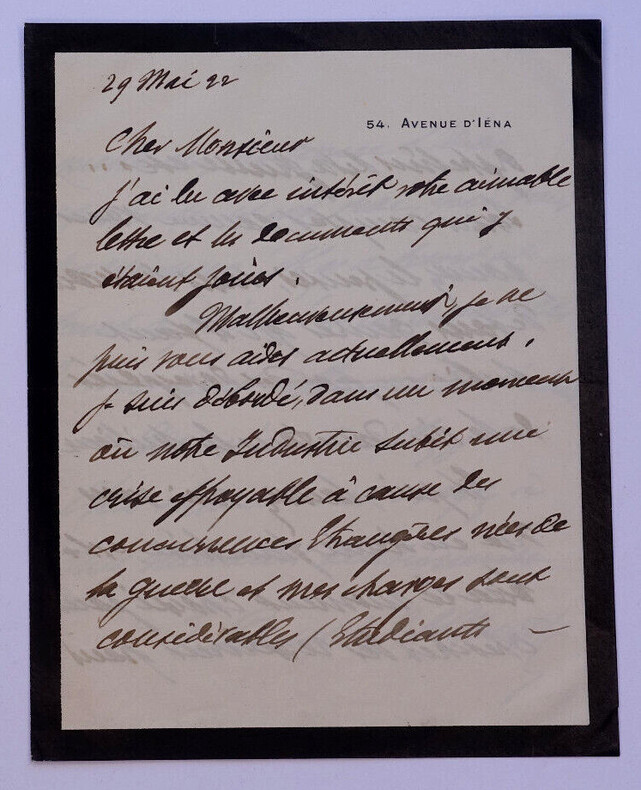 29 Mai 22
54. AVENUE D'IÉNA
Cher Monsieur
J'ai lu avec intérêt votre aimable
lettre et les documents qui y
étaient joints.
Malheureusement, je ne
puis vous aider actuellement.
Je suis débordé, dans un moment
où notre Industrie subit une
crise effroyable à cause des
concurrences Etrangères nées de
la guerre et mes charges sont
considérables (Etudiants —